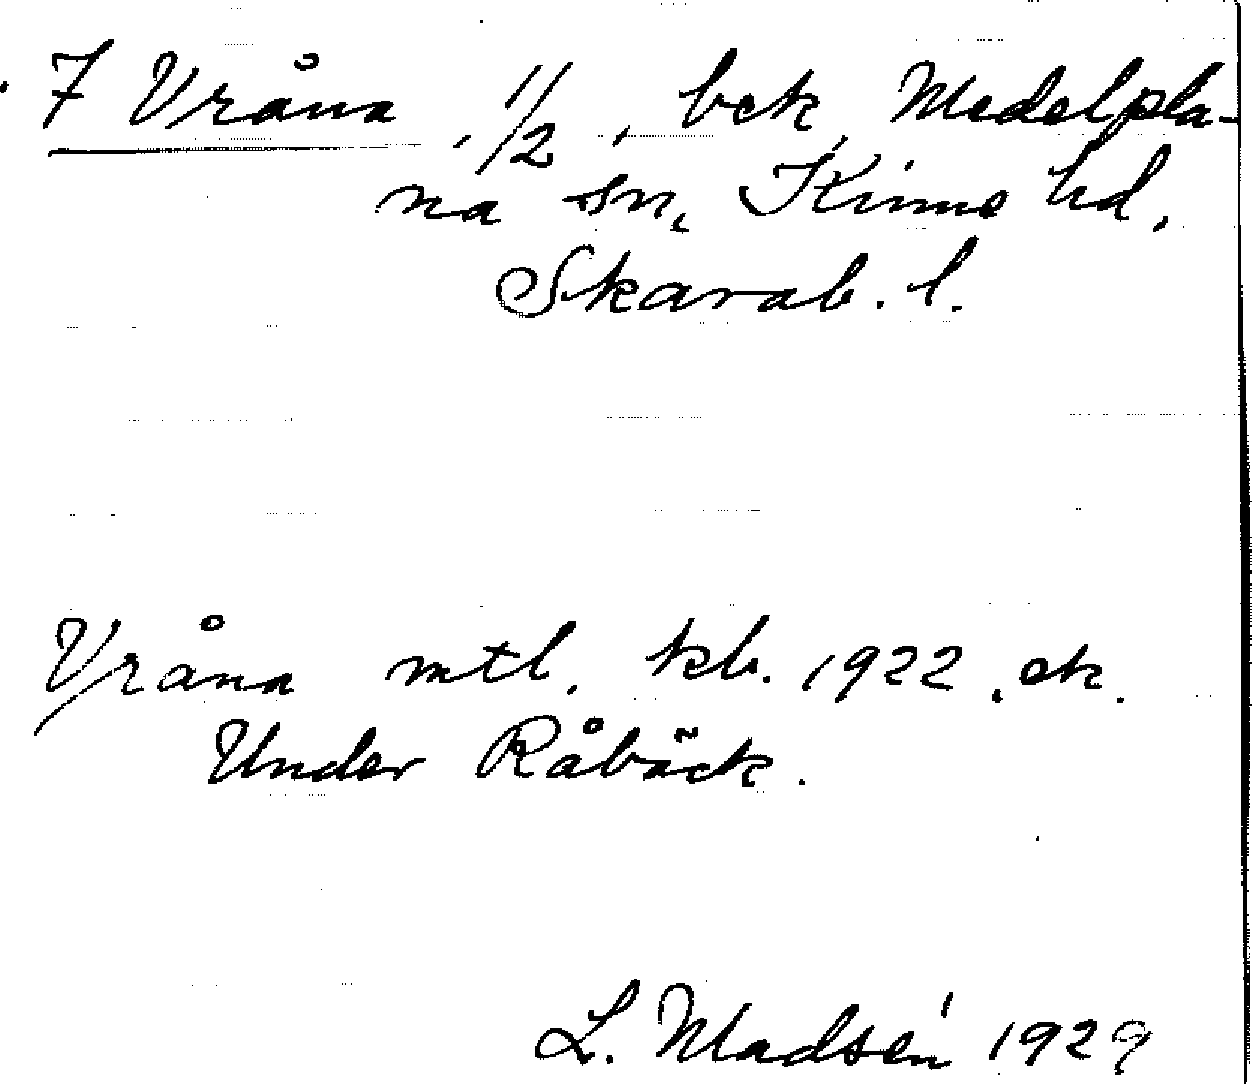 7 Vråna, 1/2, bek, Medelpla-
na sn, Kinne hd,
Skarab. l.
Vråna mtl. kb. 1922. ek.
Under Råbäck.
L. Madsén 1929